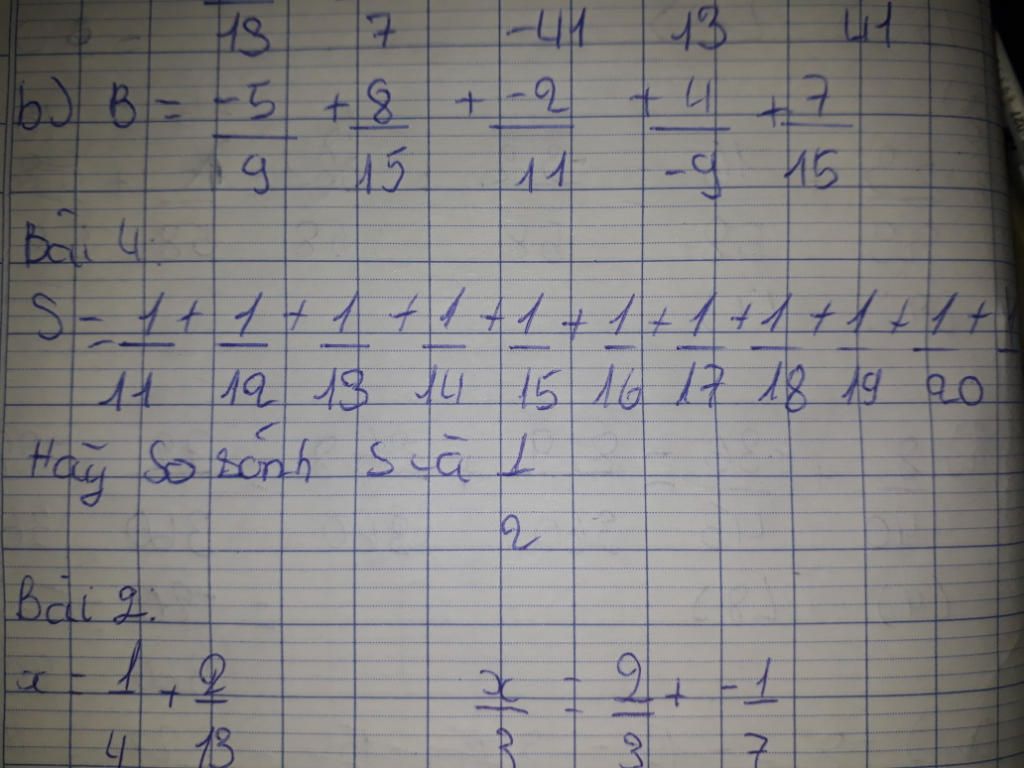 13 7 -41 13 41
b) B = -5/9 + 8/15 + -2/11 + 4/-9 + 7/15
Bài 4:
S = 1/11 + 1/12 + 1/13 + 1/14 + 1/15 + 1/16 + 1/17 + 1/18 + 1/19 + 1/20 +
Hãy so sánh S và 1/2
Bài 2:
x = 1/4 + 2/13 x/3 = 2/3 + -1/7